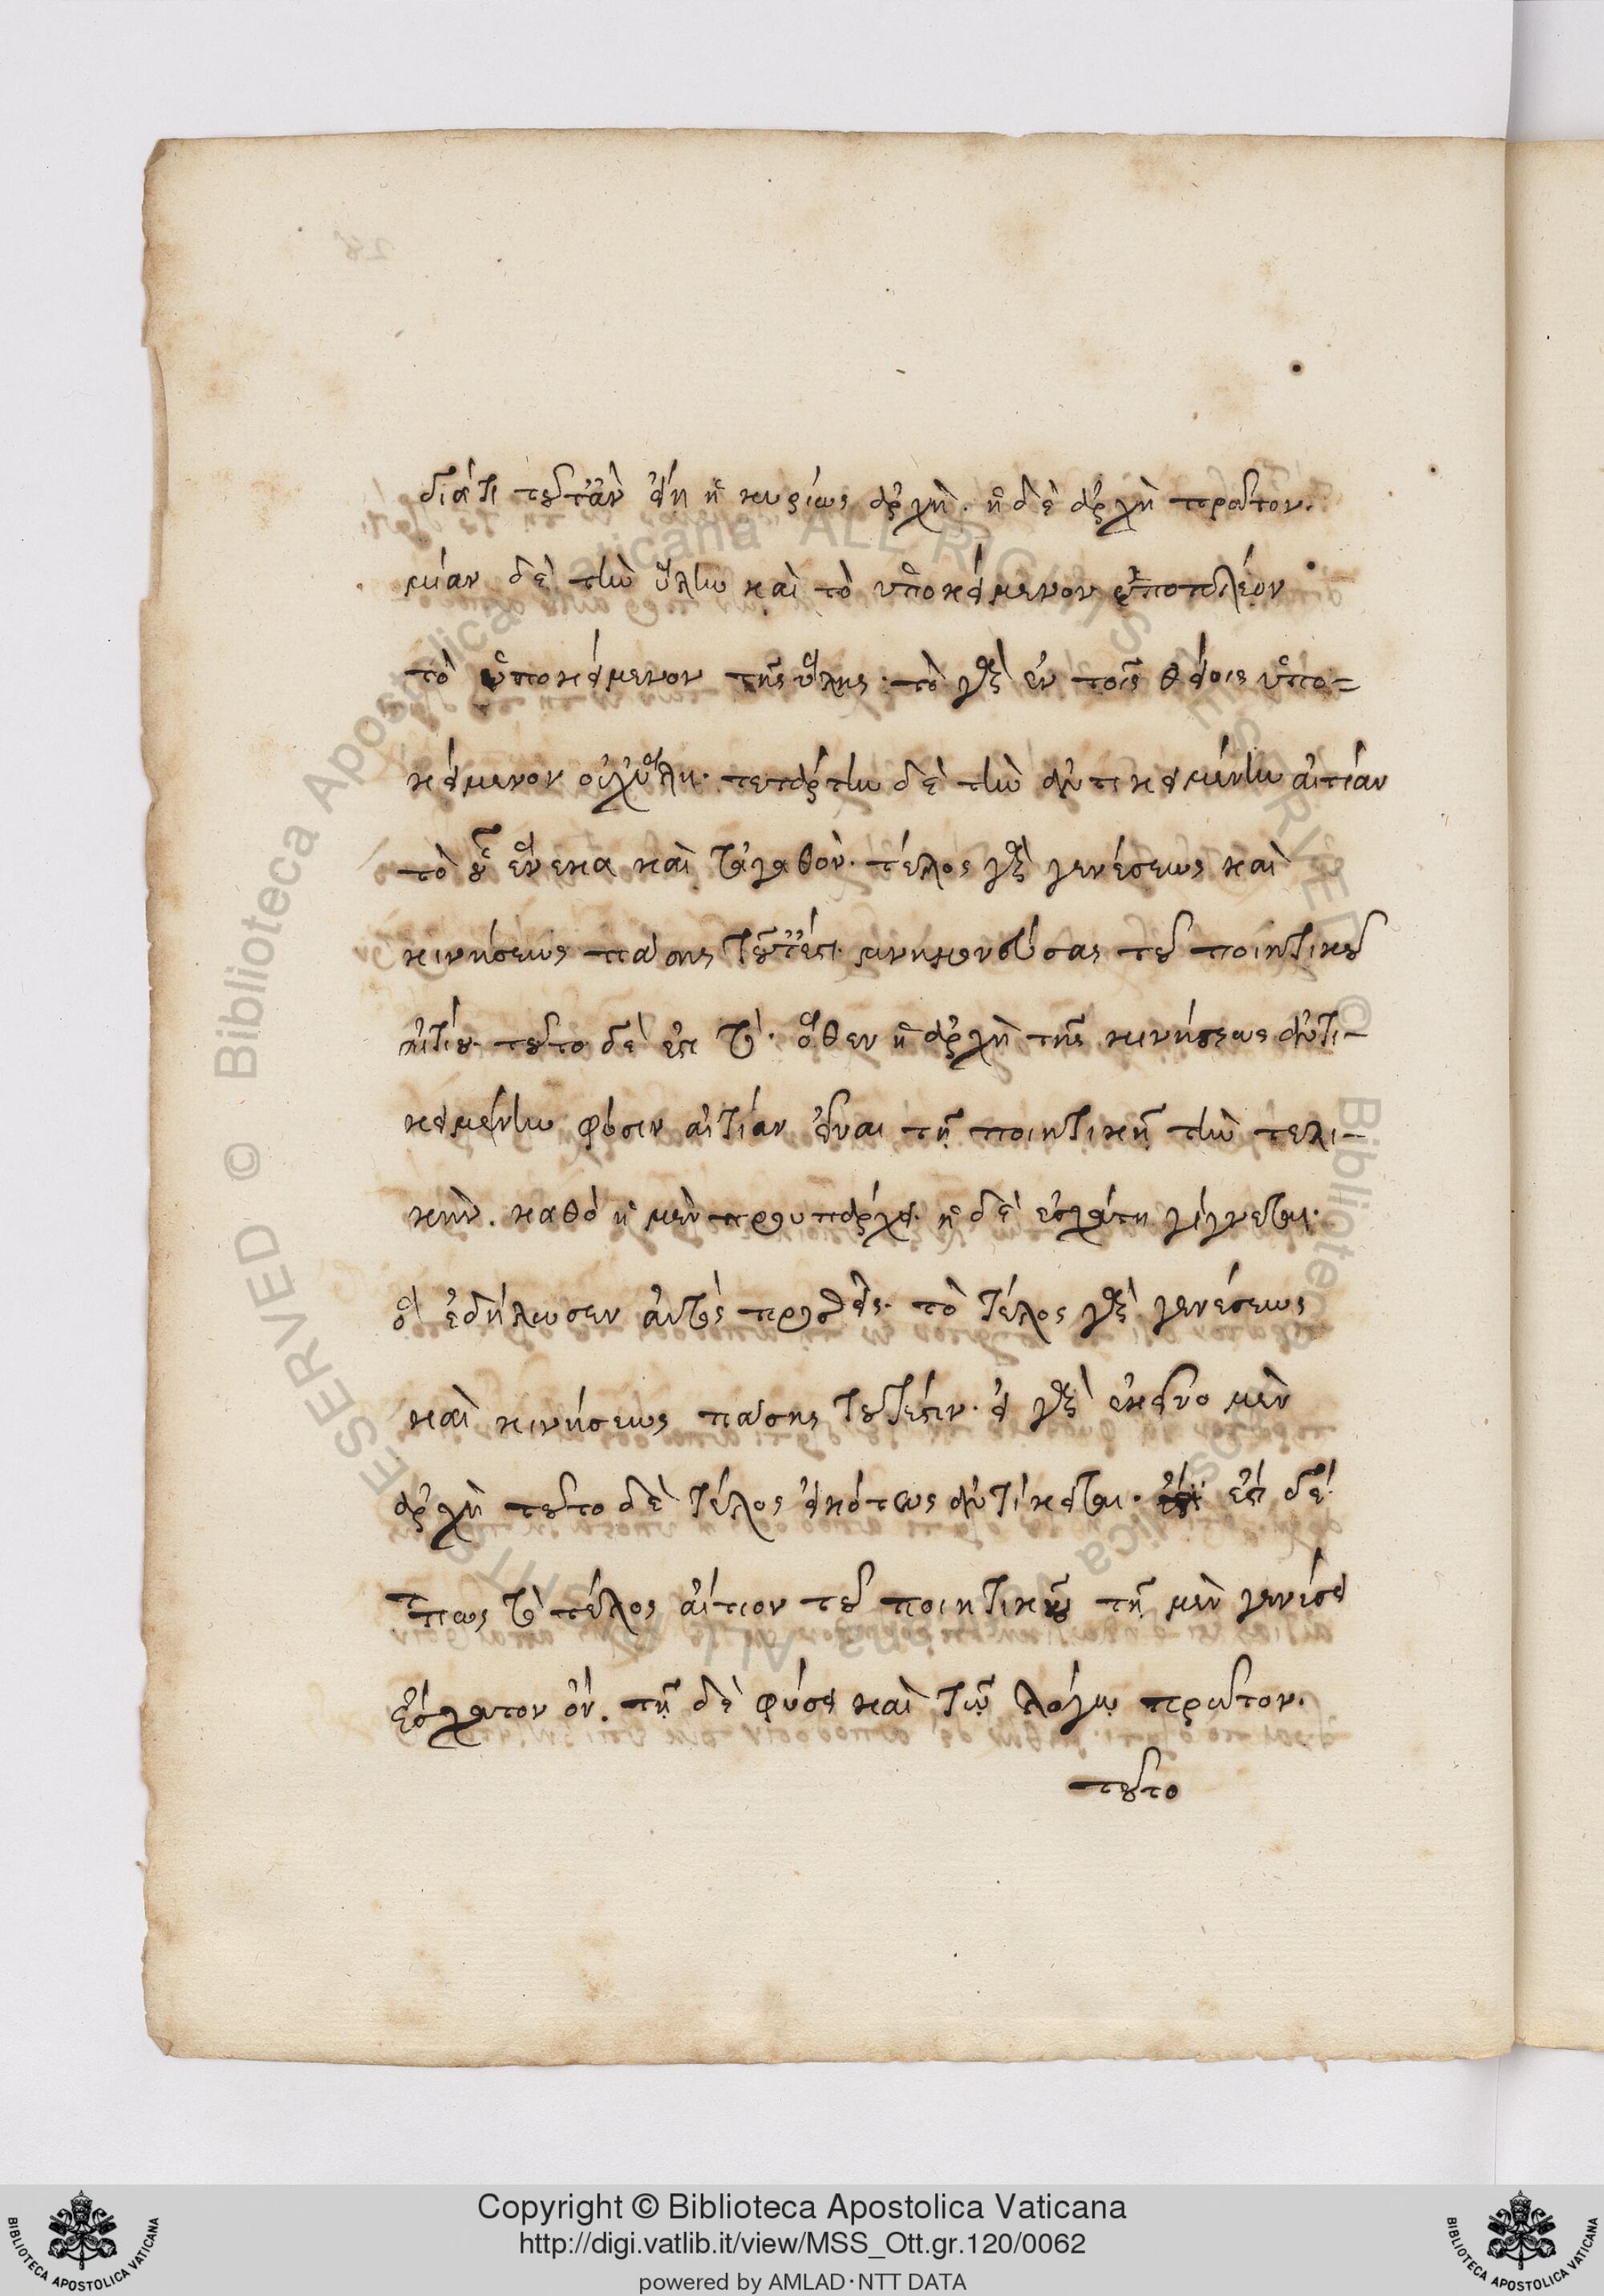 διάτι τοῦτἂν εἴη ἡ κυρίως ἀρχὴ. ἡ δὲ ἀρχὴ πρῶτον.
μίαν δὲ τὴν ὕλην καὶ τὸ ὑποκείμενον
τὸ ὑποκείμενον τῆς ὕλης. τὸ γὰρ ἐν τοῖς θείοις ὑπο=
κείμενον οὐχ ὕλη. τετάρτην δὲ τὴν ἀντικειμένην αἰτίαν
τὸ οὗ ἕνεκα καὶ τἀγαθόν. τέλος γὰρ γενέσεως καὶ
κινήσεως πάσης τοῦτ' ἐστι. μνημονεύσας τοῦ ποιητικοῦ
αἰτίου. τοῦτο δὲ ἐστι τὸ. ὅθεν ἡ ἀρχὴ τῆς κινήσεως ἀντι-
κειμένην φύσιν αἰτίαν εἶναι τῇ ποιητικῇ τὴν τελι-
κήν. καθὸ ἡ μὲν προυπάρχει. ἡ δὲ ἐσχάτη γίγνεται.
ὃ ἐδήλωσεν αὐτὸς προσθείς. τὸ τέλος γὰρ γενέσεως
καὶ κινήσεως πάσης τοῦτ' ἐστιν. εἰ γὰρ ἐκεῖνο μὲν
ἀρχὴ τοῦτο δὲ τέλος εἰκότως ἀντίκειται. ἐστι δὲ
πως τὸ τέλος αἴτιον τοῦ ποιητικοῦ τῇ μὲν γενέσει
ἔσχατον ὄν. τῇ δὲ φύσει καὶ τῷ λόγῳ πρῶτον.
τοῦτο
Copyright © Biblioteca Apostolica Vaticana
http://digi.vatlib.it/view/MSS_Ott.gr.120/0062
powered by AMLAD·NTT DATA
BIBLIOTECA APOSTOLICA VATICANA
BIBLIOTECA APOSTOLICA VATICANA